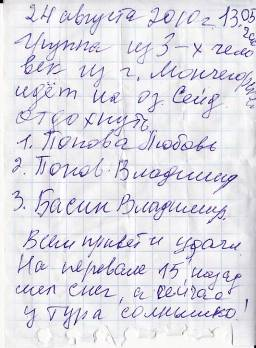 24 августа 2010 г. 13.05
Группа из 3-х чело
век из г. Мончегор
идёт на оз. Сейд.
отдохнуть.
1. Попова Любовь
2. Попов Владимир
3. Басин Владимир.
Всем привет и удачи.
На перевале 15 назад
шел снег, а сейчас
у тура солнышко!